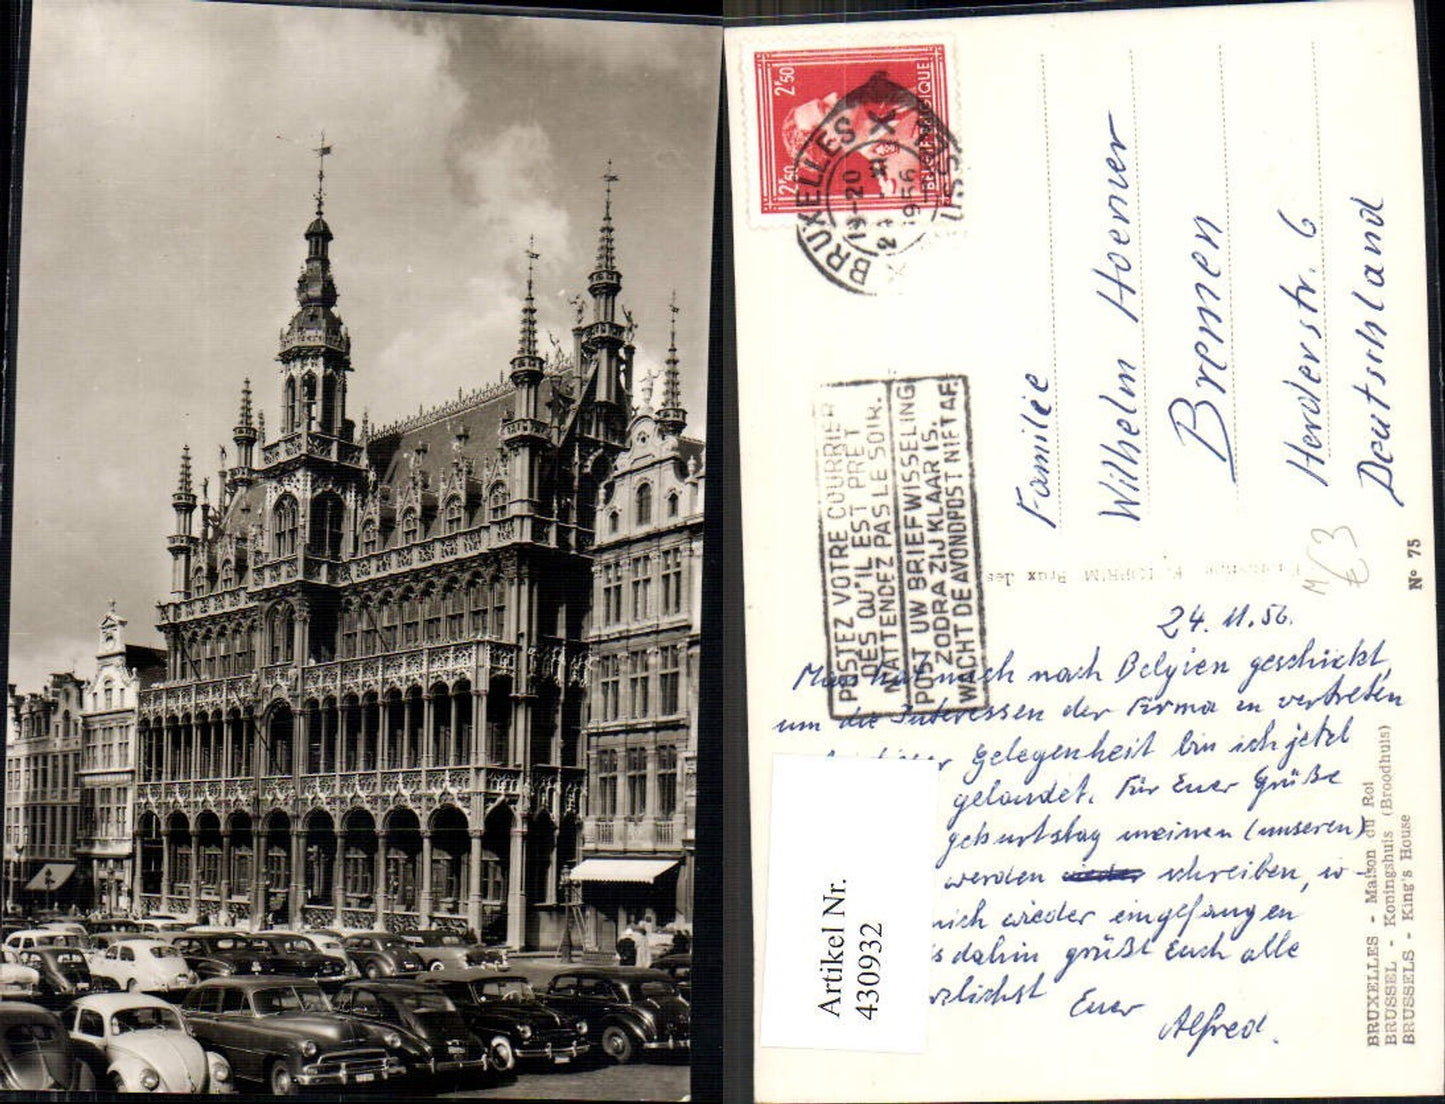 2F50
2F50
BELGIE-BELGIQUE
BRUXELLES X
19-20
1956
POSTEZ VOTRE COURRIER
DÈS QU'IL EST PRÊT
N'ATTENDEZ PAS LE SOIR.
POST UW BRIEFWISSELING
ZODRA ZIJ KLAAR IS.
WACHT DE AVONDPOST NIET AF.
Familie
Wilhelm Hoener
Bremen
Herderstr. 6
Deutschland
€3
N° 75
24. 11. 56.
Man hat mich nach Belgien geschickt,
um die Interessen der Firma zu vertreten
Gelegenheit bin ich jetzt
gelandet. Für Euer Grüße
geburtstag meinen (unseren)
werden schreiben,
mich wieder eingefangen
dahin grüßt Euch alle
Euer
Alfred.
BRUXELLES - Maison du Roi
BRUSSEL - Koningshuis (Broodhuis)
BRUSSELS - King's House
Artikel Nr.
430932